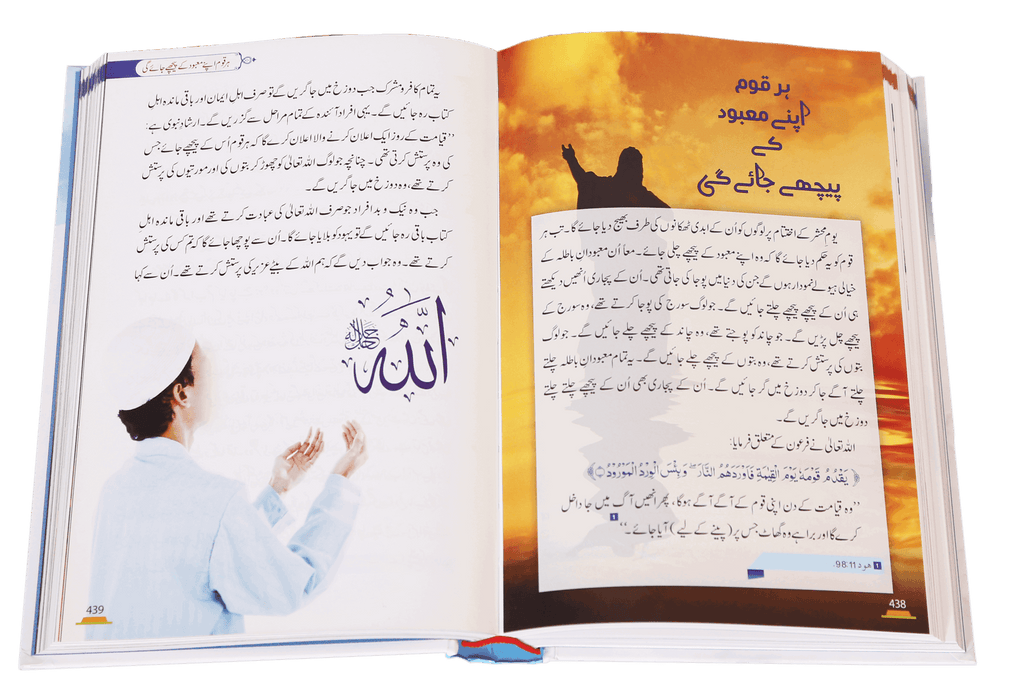 ہر قوم
اپنے معبود
کے
پیچھے جائے گی
یوم محشر کے اختتام پر لوگوں کو اُن کے ابدی ٹھکانوں کی طرف بھیج دیا جائے گا۔ تب ہر
قوم کو یہ حکم دیا جائے گا کہ وہ اپنے معبود کے پیچھے چلی جائے۔ معاً اُن معبودان باطلہ کے
خیالی ہیولے نمودار ہوں گے جن کی دنیا میں پوجا کی جاتی تھی۔ اُن کے پجاری انھیں دیکھتے
ہی اُن کے پیچھے پیچھے چلتے جائیں گے۔ جو لوگ سورج کی پوجا کرتے تھے، وہ سورج کے
پیچھے چل پڑیں گے۔ جو چاند کو پوجتے تھے، وہ چاند کے پیچھے چلے جائیں گے۔ جو لوگ
بتوں کی پرستش کرتے تھے، وہ بتوں کے پیچھے چلے جائیں گے۔ یہ تمام معبودان باطلہ چلتے
چلتے آگے جا کر دوزخ میں گر جائیں گے۔ اُن کے پجاری بھی اُن کے پیچھے چلتے چلتے
دوزخ میں جا گریں گے۔
اللہ تعالیٰ نے فرعون کے متعلق فرمایا:
﴿ يَقْدُمُ قَوْمَهٗ يَوْمَ الْقِيٰمَةِ فَاَوْرَدَهُمُ النَّارَ ۖ وَبِئْسَ الْوِرْدُ الْمَوْرُوْدُ ﴾
’’وہ قیامت کے دن اپنی قوم کے آگے آگے ہوگا، پھر انھیں آگ میں جا داخل
کرے گا اور برا ہے وہ گھاٹ جس پر (پینے کے لیے) آیا جائے۔‘‘ 1
1 ھود 98:11.
438
ہر قوم اپنے معبود کے پیچھے جائے گی
یہ تمام کافر و مشرک جب دوزخ میں جا گریں گے تو صرف اہل ایمان اور باقی ماندہ اہل
کتاب رہ جائیں گے۔ یہی افراد آئندہ کے تمام مراحل سے گزریں گے۔ ارشاد نبوی ہے:
’’قیامت کے روز ایک اعلان کرنے والا اعلان کرے گا کہ ہر قوم اُس کے پیچھے جائے جس
کی وہ پرستش کرتی تھی۔ چنانچہ جو لوگ اللہ تعالیٰ کو چھوڑ کر بتوں کی اور مورتیوں کی پرستش
کرتے تھے، وہ دوزخ میں جا گریں گے۔
جب وہ نیک و بد افراد جو صرف اللہ تعالیٰ کی عبادت کرتے تھے اور باقی ماندہ اہل
کتاب باقی رہ جائیں گے تو یہود کو بلایا جائے گا۔ اُن سے پوچھا جائے گا کہ تم کس کی پرستش
کرتے تھے۔ وہ جواب دیں گے کہ ہم اللہ کے بیٹے عزیر کی پرستش کرتے تھے۔ اُن سے کہا
اللّٰه جل جلاله
439